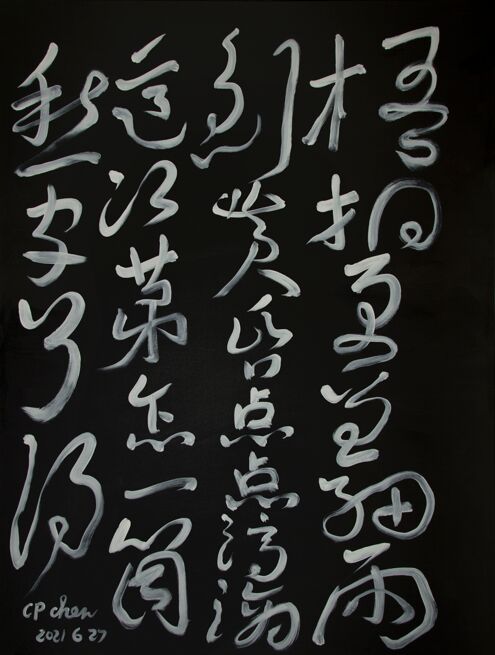 梧桐更兼細雨
到黃昏点点滴滴
這次第怎一箇
愁字了得
CP chen
2021 6 27